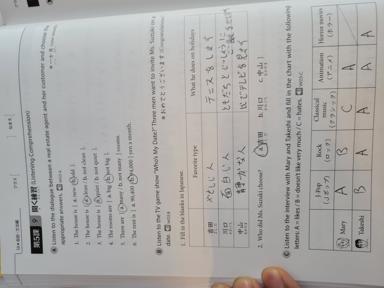 第5課 9 聞く練習 (Listening Comprehension)
A Listen to the dialogue between a real estate agent and her customer and choose the
appropriate answers.
1. The house is [ a. new b. old ].
2. The house is [ a. clean b. not clean ].
3. The house is [ a. quiet b. not quiet ].
4. The rooms are [ a. big b. not big ].
5. There are [ a. many b. not many ] rooms.
6. The rent is [ a. 90,400 b. 94,000 ] yen a month.
B Listen to the TV game show "Who's My Date?" Three men want to invite Ms. Suzuki on a
date.
*おめでとうございます (Congratulations)
1. Fill in the blanks in Japanese.
Favorite type What he does on holidays
吉田 やさしい人 テニスをします
川口 面白い人
中山 静かな人
2. Who did Ms. Suzuki choose? a. 吉田 b. 川口 c. 中山
C Listen to the interview with Mary and Takeshi and fill in the chart with the following
letters: A = likes / B = doesn't like very much / C = hates.
J-Pop Rock Classical music Animation Horror movies
(Jポップ) (ロック) (クラシック) (アニメ) (ホラー)
Mary A B C A
Takeshi B A A A A